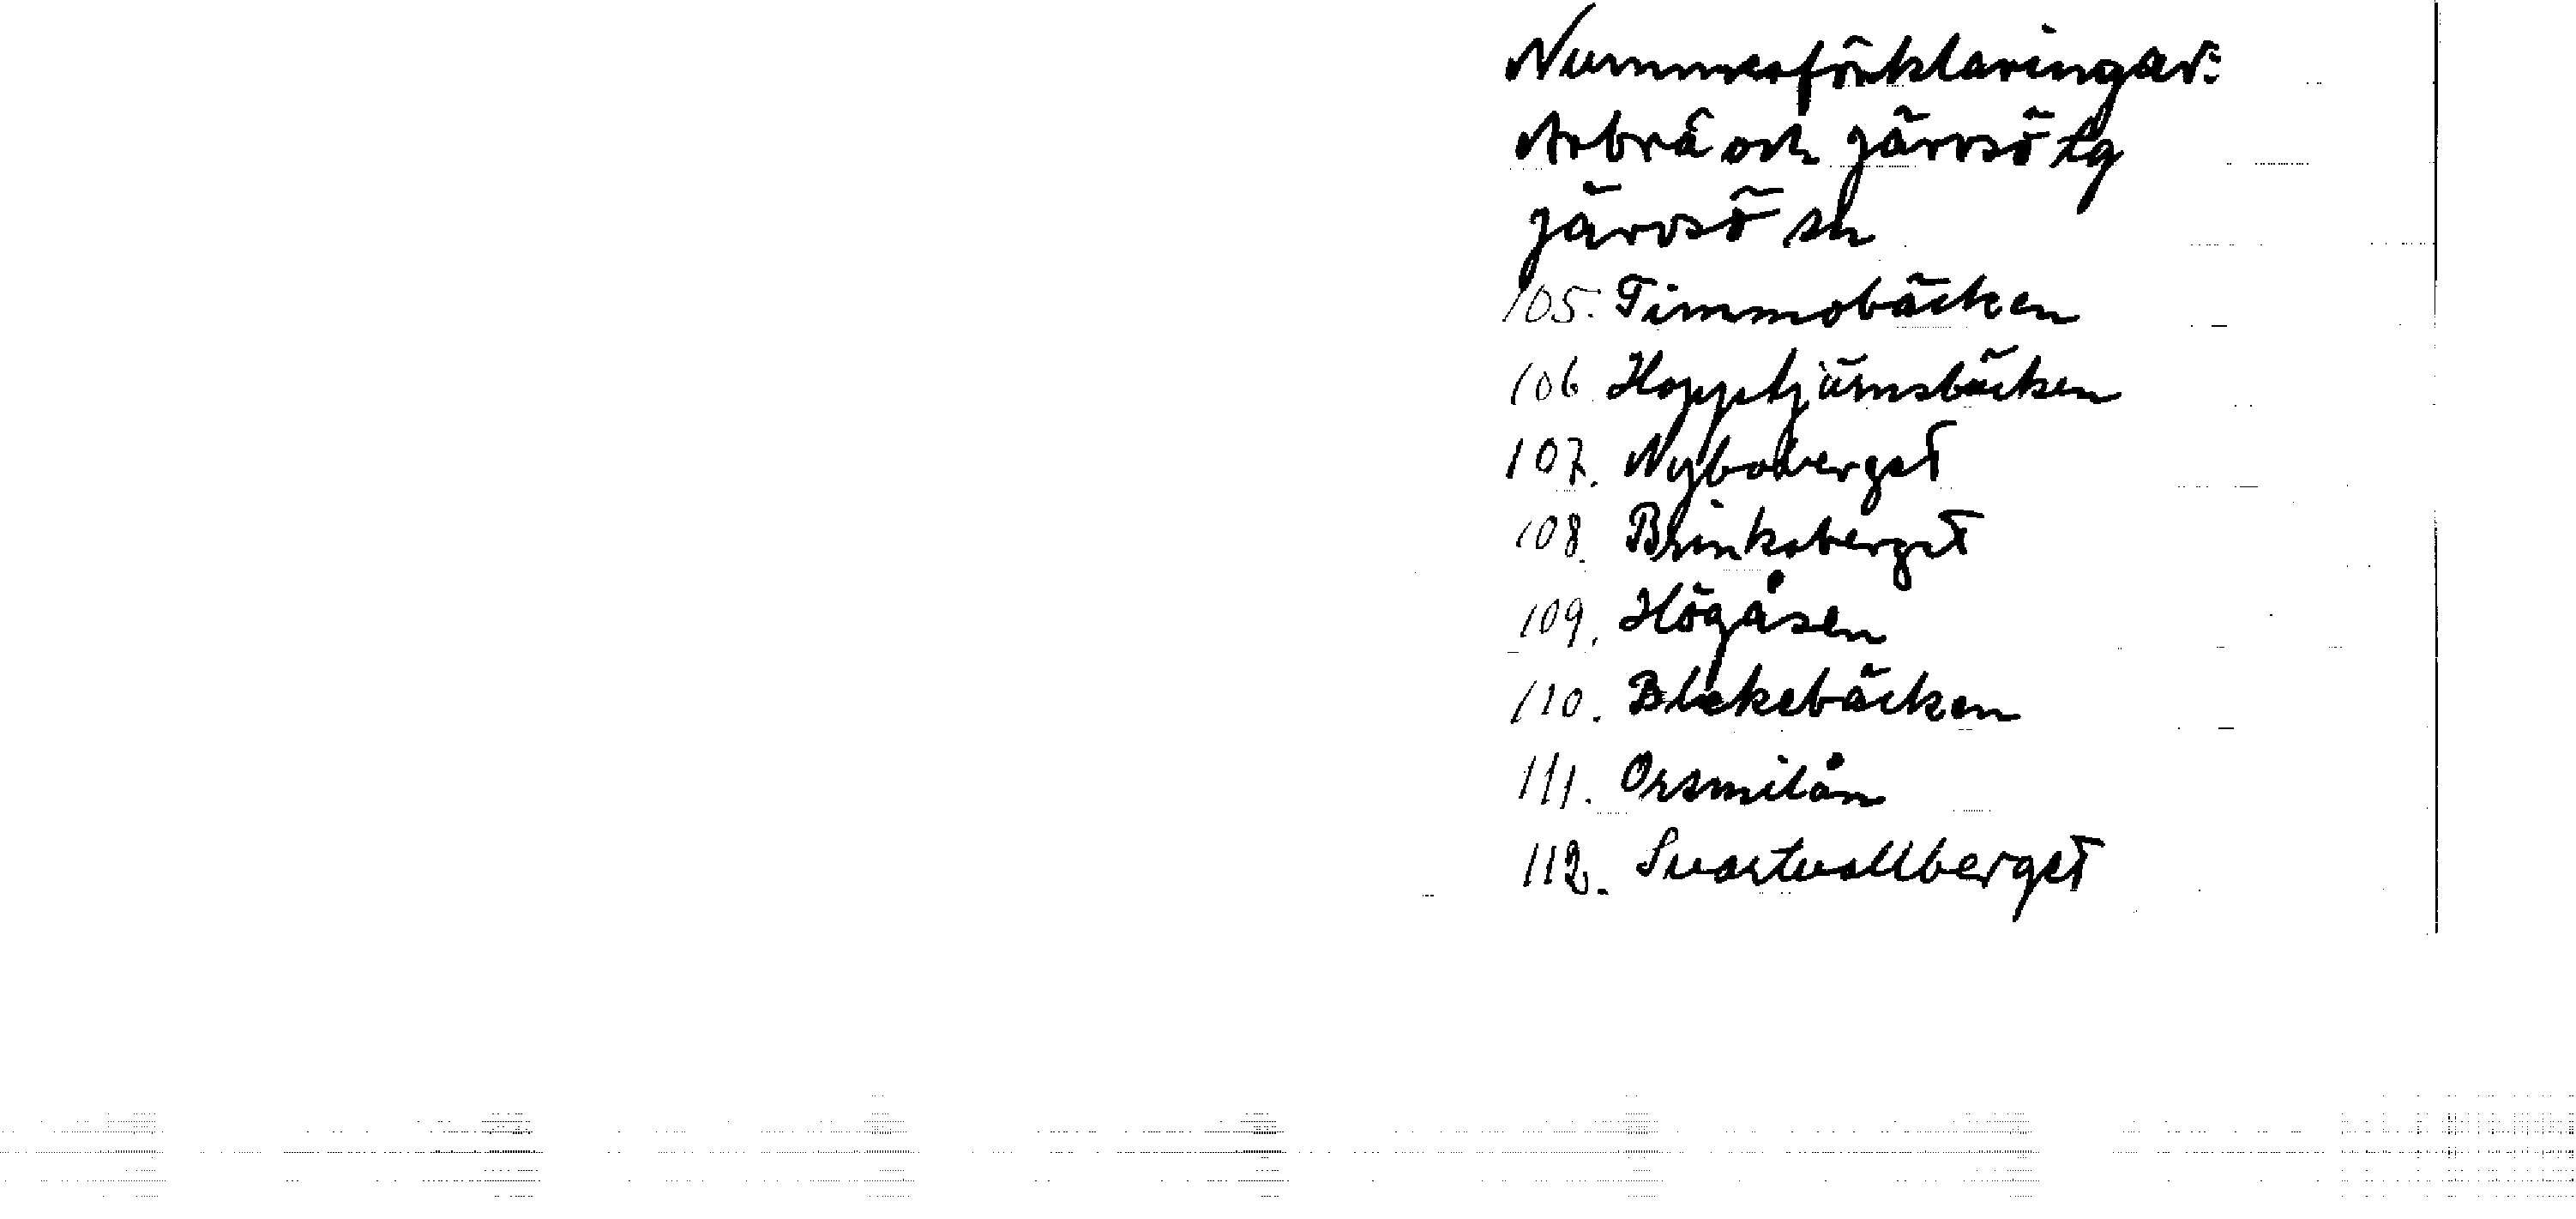 Nummerförklaringar:
Arbrå och Järvsö tg
Järvsö sn
105. Timmobäcken
106. Hopptjärnsbäcken
107. Nyboberget
108. Brinkaberget
109. Högåsen
110. Blekebäcken
111. Orsmilån
112. Svartvallberget